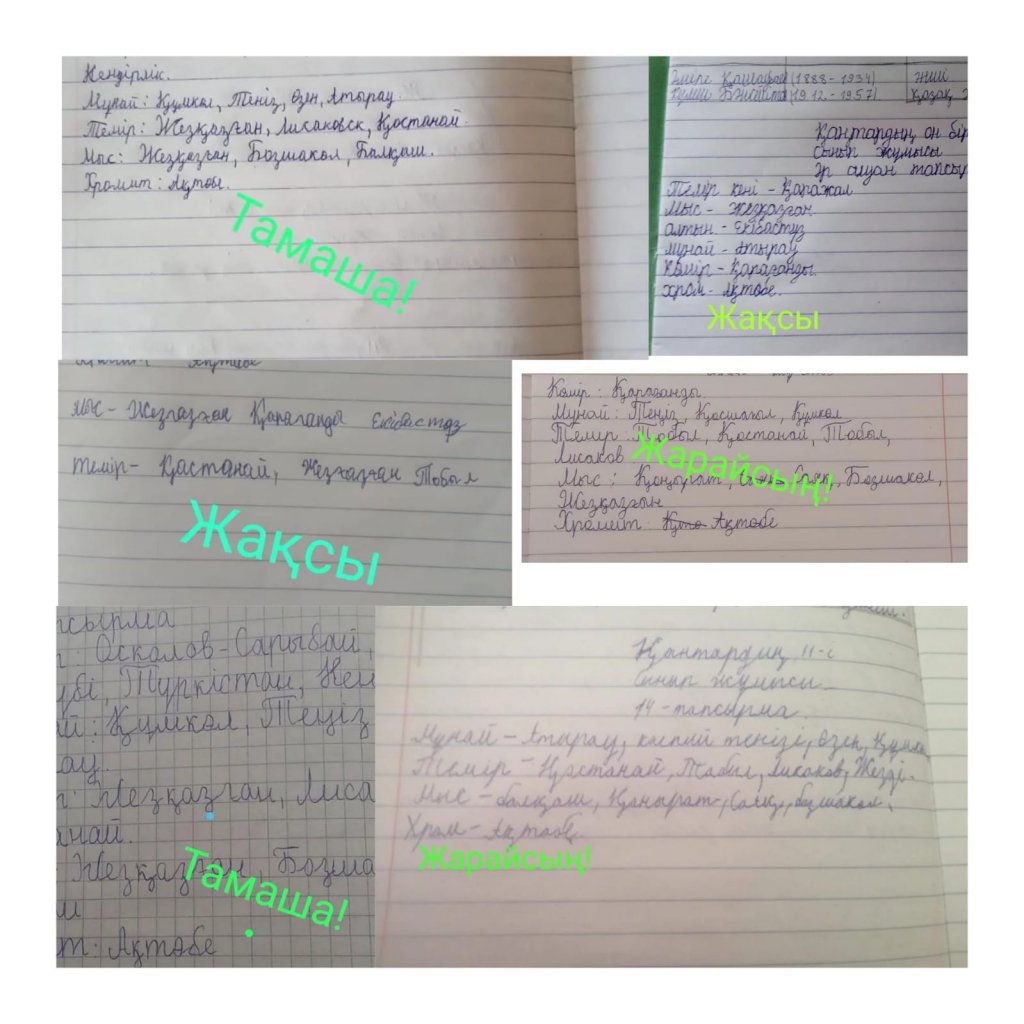 Кендірлік.
Мұнай: Құмкөл, Теңіз, Өзен, Атырау.
Темір: Жезқазған, Лисаковск, Қостанай.
Мыс: Жезқазған, Бозшакөл, Балқаш.
Хромит: Ақтөбе.
Тамаша!
(1888-1934) әнші.
(1912-1957) қазақ
Қаңтардың он бір
Сынып жұмысы
Әр алуан тапсыр
Темір кені - Қаражал
Мыс - Жезқазған
алтын - Екібастұз
мұнай - Атырау
Көмір - Қарағанды
хром - Ақтөбе.
Жақсы
Ақтөбе
Мыс - Жезғазған Қарағанды Екібастоз
темір - Қастанай, Жезғазған Тобыл
Жақсы
Көмір: Қарағанды.
Мұнай: Теңіз, Қосшағыл, Құмкөл
Темір: Тобыл, Қостанай, Тобыл,
Лисаков
Мыс: Қоңырат, Саяқ, Бозшакөл,
Жезқазған
Хромит: Ақтөбе
Жарайсың!
псырма
Осколов-Сарыбай,
үбі, Түркістан, Кен
ай: Құмкөл, Теңіз
рау.
Жезқазған, Лиса
анай.
Жезқазған, Бозша
т: Ақтөбе
Тамаша!
Қаңтардың 11-і
Сынып жұмысы
14-тапсырма
Мұнай - Атырау, каспий теңізі, Өзен, Құмкөл
Темір - Қостанай, Тобыл, Лисаков, Жезді.
Мыс - балқаш, Қоңырат, Саяқ, бозшакөл.
Хром - Ақтөбе
Жарайсың!